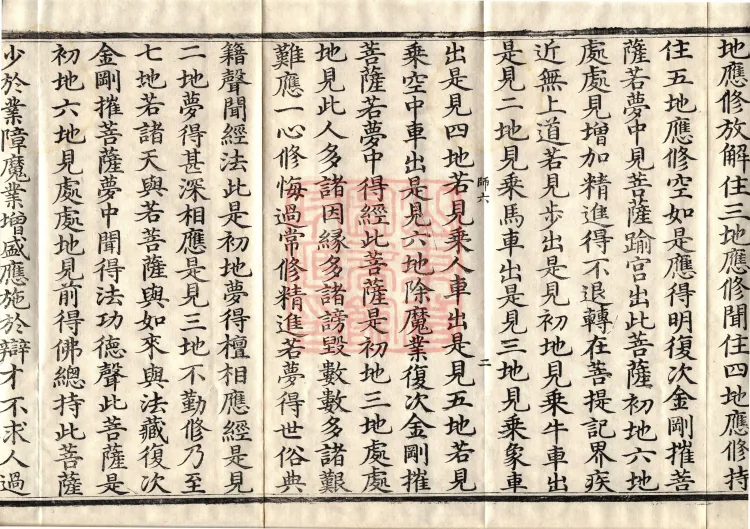 地應修放解住三地應修聞住四地應修持
住五地應修空如是應得明復次金剛摧菩
薩若夢中見菩薩踰宮出此菩薩初地六地
處處見增加精進得不退轉在菩提記界疾
近無上道若見步出是見初地見乘牛車出
是見二地見乘馬車出是見三地見乘象車
師六
二
出是見四地若見乘人車出是見五地若見
乘空中車出是見六地除魔業復次金剛摧
菩薩若夢中得經此菩薩是初地三地處處
地見此人多諸因緣多諸謗毀數數多諸艱
難應一心修悔過常修精進若夢得世俗典
籍聲聞經法此是初地夢得檀相應經是見
二地夢得甚深相應是見三地不勤修乃至
七地若諸天與若菩薩與如來與法藏復次
金剛摧菩薩夢中聞得法功德聲此菩薩是
初地六地見處處地見前得佛總持此菩薩
少於業障魔業增盛應施於辯才不求人過